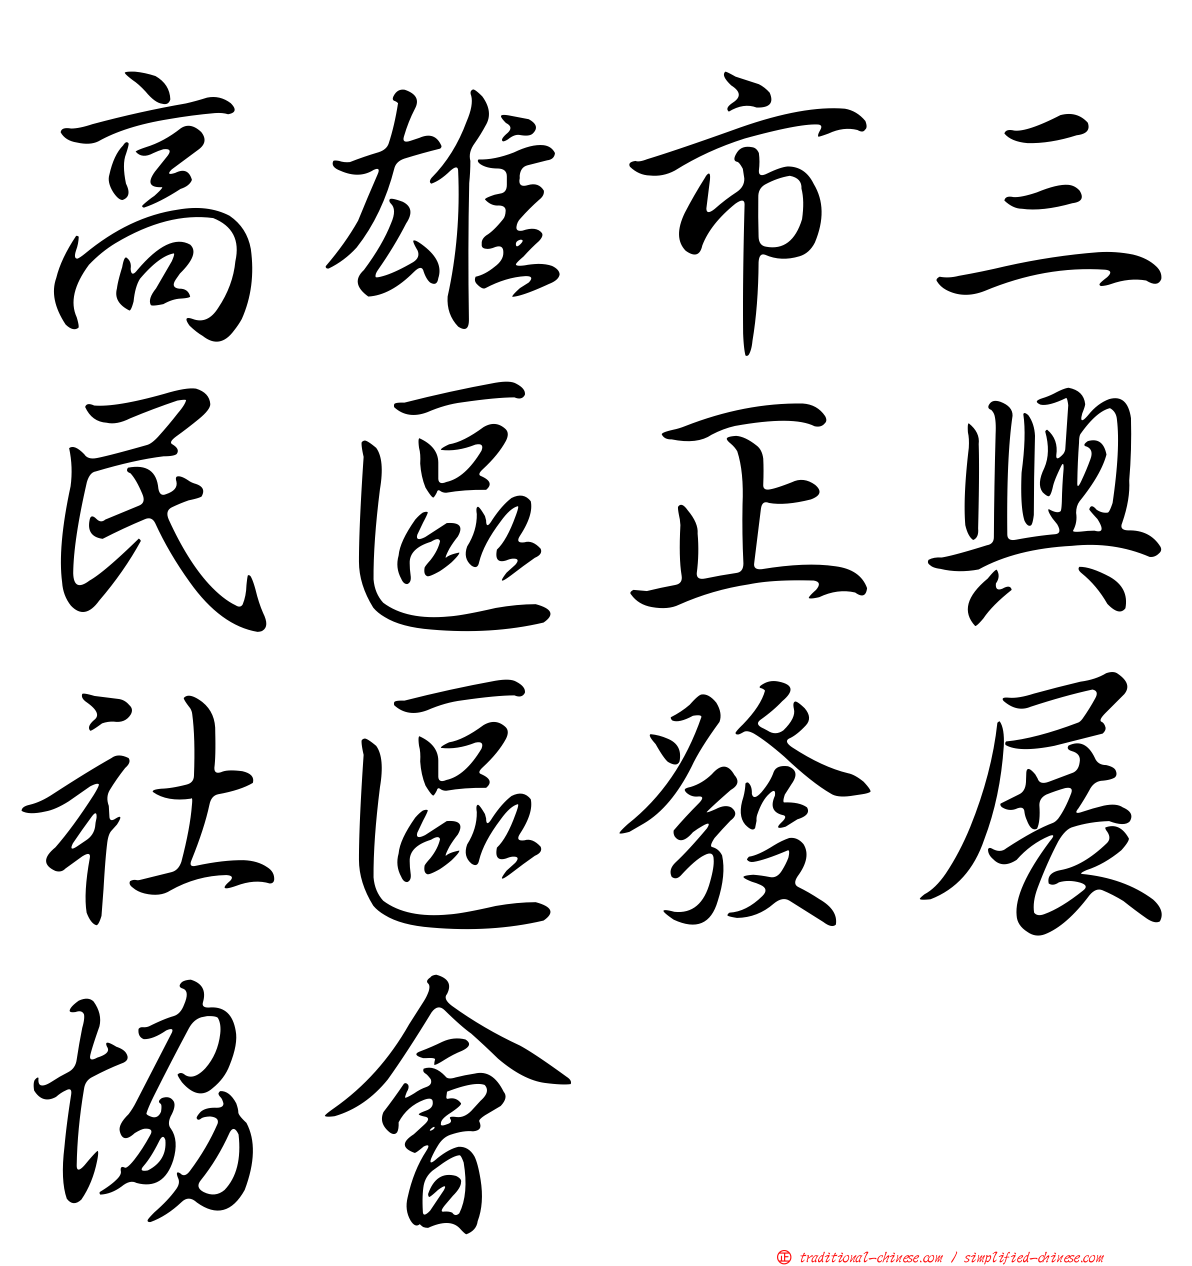 高雄市三
民區正興
社區發展
協會
正 traditional-chinese.com / simplified-chinese.com